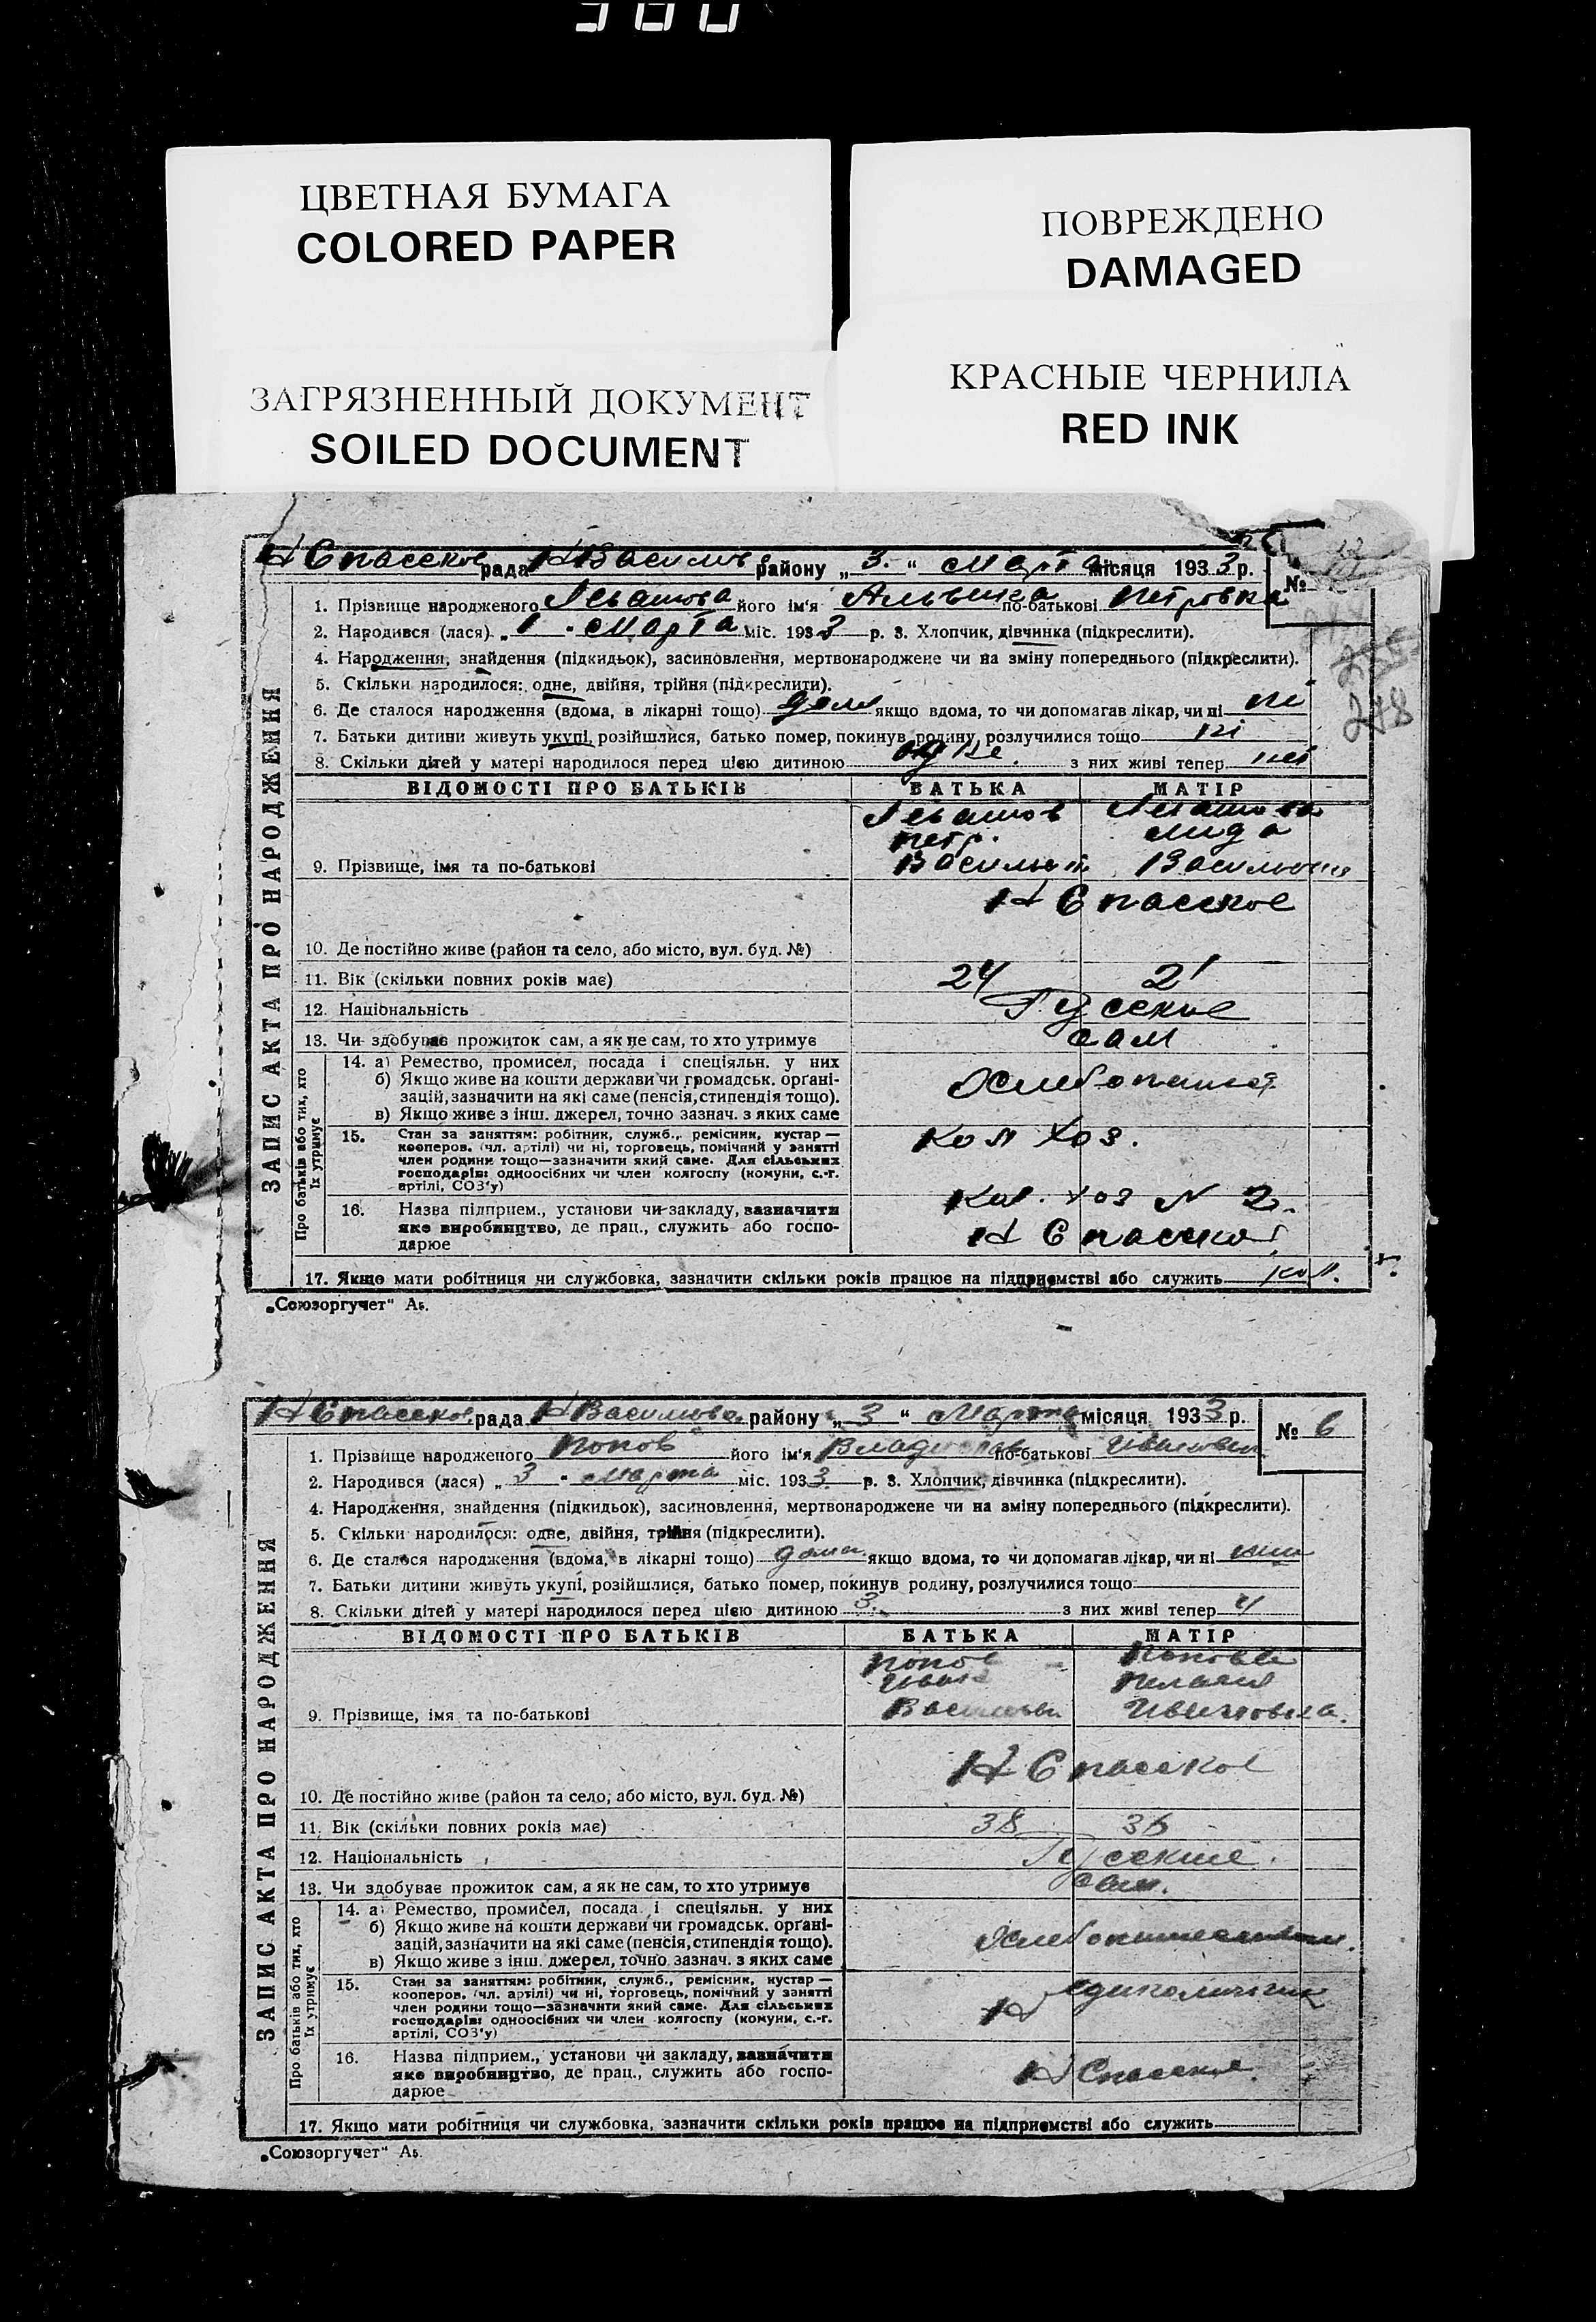 ЦВЕТНАЯ БУМАГА
COLORED PAPER
ПОВРЕЖДЕНО
DAMAGED
ЗАГРЯЗНЕННЫЙ ДОКУМЕНТ
SOILED DOCUMENT
КРАСНЫЕ ЧЕРНИЛА
RED INK
ЗАПИС АКТА ПРО НАРОДЖЕННЯ
Н Спасское рада Н Василів району „3.“ Марта місяця 1933 р.
№
1. Прізвище народженого Левашова його ім'я по-батькові Петровна
2. Народився (лася) „1“ Марта міс. 1933 р. 3. Хлопчик, дівчинка (підкреслити).
4. Народження, знайдення (підкидьок), засиновлення, мертвонароджене чи на зміну попереднього (підкреслити).
278
5. Скільки народилося: одне, двійня, трійня (підкреслити).
6. Де сталося народження (вдома, в лікарні тощо) дома якщо вдома, то чи допомагав лікар, чи ні ні
7. Батьки дитини живуть укупі, розійшлися, батько помер, покинув родину, розлучилися тощо ні
8. Скільки дітей у матері народилося перед цією дитиною одне. з них живі тепер
ВІДОМОСТІ ПРО БАТЬКІВ БАТЬКА МАТІР
Левашов Левашова
Петр. Лида
9. Прізвище, імя та по-батькові Васильев. Васильовна
Н Спасское
10. Де постійно живе (район та село, або місто, вул. буд. №)
11. Вік (скільки повних років має) 24 21
12. Національність Русские
13. Чи здобуває прожиток сам, а як не сам, то хто утримує сам
Про батьків або тих, хто їх утримує
14. а) Ремество, промисел, посада і спеціяльн. у них
б) Якщо живе на кошти держави чи громадськ. органі-
зацій, зазначити на які саме (пенсія, стипендія тощо).
в) Якщо живе з інш. джерел, точно зазнач. з яких саме
15. Стан за заняттям: робітник, служб., ремісник, кустар —
кооперов. (чл. артілі) чи ні, торговець, помічний у занятті
член родини тощо—зазначити який саме. Для сільських
господарів: одноосібних чи член колгоспу (комуни, с.-г.
артілі, СОЗ'у)
Кол хоз.
16. Назва підприєм., установи чи закладу, зазначити
яке виробництво, де прац., служить або госпо-
дарює
Кол. хоз № 2.
Н Спасское
17. Якщо мати робітниця чи службовка, зазначити скільки років працює на підприємстві або служить кол.
„Союзоргучет“ Аъ.
ЗАПИС АКТА ПРО НАРОДЖЕННЯ
Н Спасское рада Н Василівс району „3“ Марта місяця 1933 р.
№ 6
1. Прізвище народженого Попов його ім'я Владислав по-батькові Иванович
2. Народився (лася) „3“ Марта міс. 1933 р. 3. Хлопчик, дівчинка (підкреслити).
4. Народження, знайдення (підкидьок), засиновлення, мертвонароджене чи на зміну попереднього (підкреслити).
5. Скільки народилося: одне, двійня, трійня (підкреслити).
6. Де сталося народження (вдома, в лікарні тощо) дома якщо вдома, то чи допомагав лікар, чи ні
7. Батьки дитини живуть укупі, розійшлися, батько помер, покинув родину, розлучилися тощо
8. Скільки дітей у матері народилося перед цією дитиною 3. з них живі тепер 4
ВІДОМОСТІ ПРО БАТЬКІВ БАТЬКА МАТІР
Попов Попова
Иван Пелагея
9. Прізвище, імя та по-батькові Васильеви Ивановна.
Н Спасское
10. Де постійно живе (район та село, або місто, вул. буд. №)
11. Вік (скільки повних років має) 38 36
12. Національність Русские.
13. Чи здобуває прожиток сам, а як не сам, то хто утримує сам.
Про батьків або тих, хто їх утримує
14. а) Ремество, промисел, посада і спеціяльн. у них
б) Якщо живе на кошти держави чи громадськ. органі-
зацій, зазначити на які саме (пенсія, стипендія тощо).
в) Якщо живе з інш. джерел, точно зазнач. з яких саме
15. Стан за заняттям: робітник, служб., ремісник, кустар —
кооперов. (чл. артілі) чи ні, торговець, помічний у занятті
член родини тощо—зазначити який саме. Для сільських
господарів: одноосібних чи член колгоспу (комуни, с.-г.
артілі, СОЗ'у)
единоличник
16. Назва підприєм., установи чи закладу, зазначити
яке виробництво, де прац., служить або госпо-
дарює
Н Спасское.
17. Якщо мати робітниця чи службовка, зазначити скільки років працює на підприємстві або служить
„Союзоргучет“ Аъ.